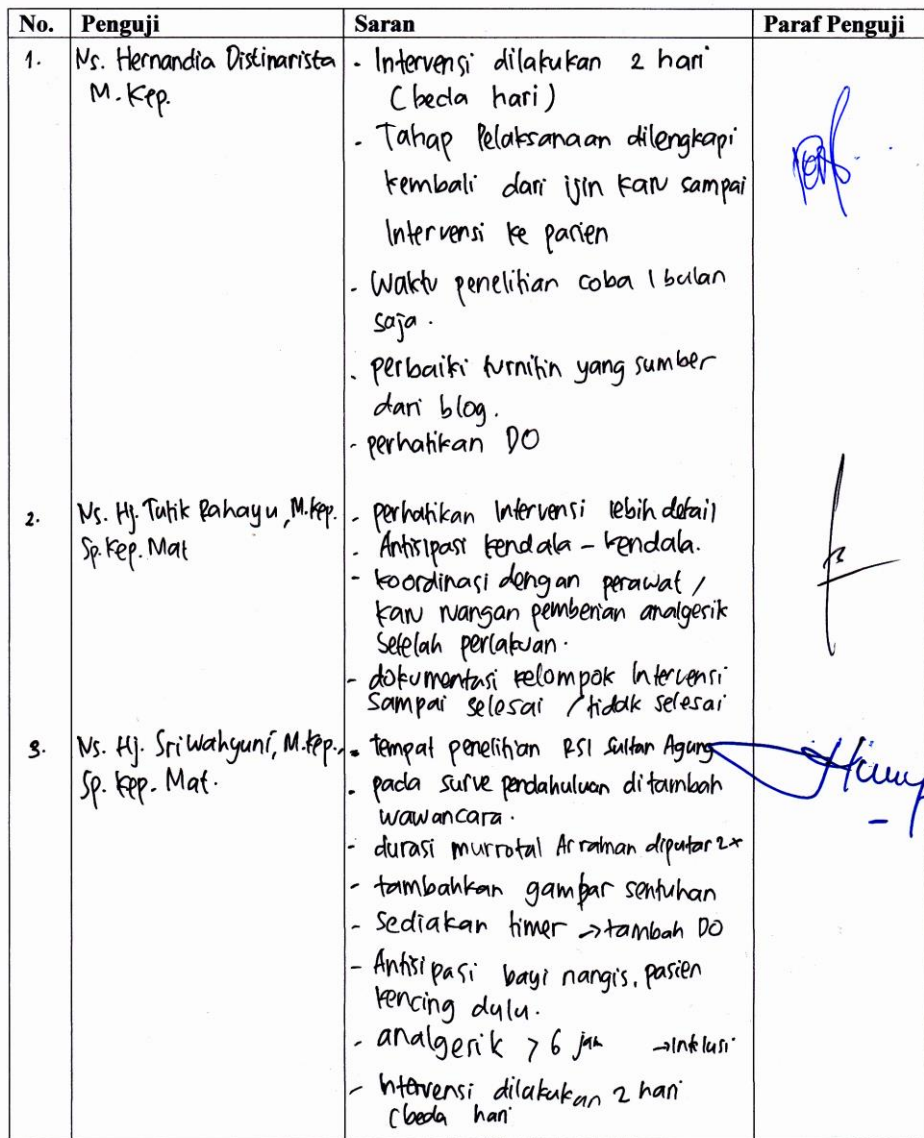 No. Penguji Saran Paraf Penguji
1. Ns. Hernandia Distinarista
M. Kep.
- Intervensi dilakukan 2 hari
(beda hari)
- Tahap Pelaksanaan dilengkapi
kembali dari ijin karu sampai
Intervensi ke pasien
- Waktu penelitian coba 1 bulan
saja.
- perbaiki turnitin yang sumber
dari blog.
- perhatikan DO
2. Ns. Hj. Tutik Rahayu, M.Kep.
Sp. Kep. Mat
- perhatikan Intervensi lebih detail
- Antisipasi kendala - kendala.
- koordinasi dengan perawat /
karu ruangan pemberian analgesik
setelah perlakuan.
- dokumentasi kelompok Intervensi
sampai selesai / tidak selesai
3. Ns. Hj. Sri Wahyuni, M.Kep.,
Sp. Kep. Mat.
- tempat penelitian RSI Sultan Agung
- pada surve pendahuluan ditambah
wawancara.
- durasi murrotal Arrahman diputar 2x
- tambahkan gambar sentuhan
- Sediakan timer → tambah DO
- Antisipasi bayi nangis, pasien
kencing dulu.
- analgesik > 6 jam → Inklusi
- Intervensi dilakukan 2 hari
(beda hari